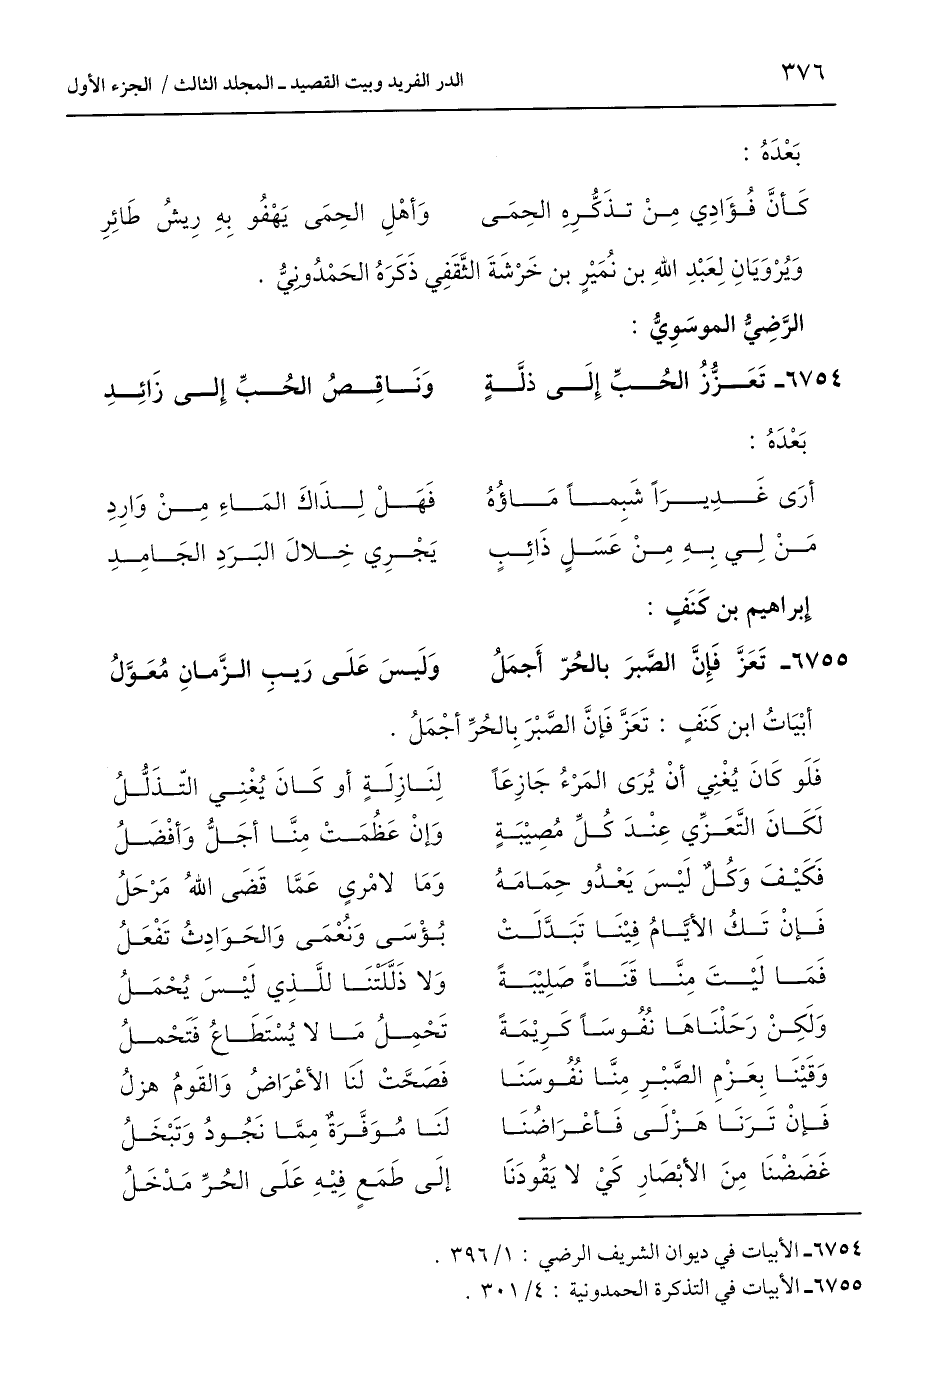 ٣٧٦
الدر الفريد وبيت القصيد ـ المجلد الثالث / الجزء الأول
بَعْدَهُ :
كَـأنَّ فُـؤَادِي مِـنْ تـذكُّـرِهِ الحِمَـى وَأهْلِ الحِمَى يَهْفُو بِهِ رِيشُ طَائِرِ
وَيُرْوَيَانِ لِعَبْدِ اللهِ بن نُمَيْرٍ بن خَرْشَةَ الثَّقَفِي ذَكَرَهُ الحَمْدُونِيُّ .
الرَّضِيُّ الموسَوِيُّ :
٦٧٥٤ـ تَعَـزُّزُ الحُـبِّ إِلَـى ذلَّـةٍ وَنَـاقِـصُ الحُـبِّ إِلـى زَائِـدِ
بَعْدَهُ :
أرَى غَـدِيـرَاً شَبِمـاً مَـاؤُهُ فَهَـلْ لِـذَاكَ المَـاءِ مِـنْ وَارِدِ
مَـنْ لِـي بِـهِ مِـنْ عَسَـلٍ ذَائِـبٍ يَجْـرِي خِـلالَ البَـرَدِ الجَـامِـدِ
إبراهيم بن كَنَفٍ :
٦٧٥٥ـ تَعَزَّ فَإِنَّ الصَّبرَ بالحُرّ أَجمَلُ وَلَيسَ عَلَى رَيبِ الـزَّمـانِ مُعَـوَّلُ
أبْيَاتُ ابن كَنَفٍ : تَعَزَّ فَإنَّ الصَّبْرَ بِالحُرِّ أجْمَلُ .
فَلَو كَانَ يُغْنِي أنْ يُرَى المَرْءُ جَازِعَاً لِنَـازِلَـةٍ أو كَـانَ يُغْنِـي التّـذلُّـلُ
لَكَـانَ التَّعَـزِّي عِنْـدَ كُـلِّ مُصِيْبَـةٍ وَإنْ عَظُمَـتْ مِنَّـا أجَـلُّ وَأفْضَـلُ
فَكَيْـفَ وَكُـلٌ لَيْـسَ يَعْـدُو حِمَـامَـهُ وَمَا لامْرِي عَمَّا قَضَى اللهُ مَرْحَلُ
فَـإنْ تَـكُ الأيَّـامُ فِيْنَـا تَبَـدَّلَـتْ بُـؤْسَـى وَنُعْمَـى وَالحَوَادِثُ تَفْعَلُ
فَمَـا لَيْـتَ مِنَّـا قَنَـاةً صَلِيْبَـةً وَلا ذَلَّلَتْنَـا للَّـذِي لَيْـسَ يُحْمَـلُ
وَلَكِـنْ رَحَلْنَـاهَـا نُفُـوسَـاً كَـرِيْمَـةً تَحْمِـلُ مَـا لا يُسْتَطَـاعُ فَتَحْمِـلُ
وَقَيْنَـا بِعَـزْمِ الصَّبْـرِ مِنَّـا نُفُـوسَنَـا فَصَحَّتْ لَنَا الأعْرَاضُ وَالقَومُ هزلُ
فَـإنْ تَـرنَـا هَـزْلَـى فَـأعْـرَاضُنَـا لَنَـا مُـوَفَّـرَةٌ مِمَّـا نَجُـودُ وَنَبْخَـلُ
غَضَضْنَا مِنَ الأبْصَارِ كَيْ لا يَقُودَنَا إلَى طَمَعٍ فِيْهِ عَلَى الحُرِّ مَدْخَلُ
٦٧٥٤ـ الأبيات في ديوان الشريف الرضي : ١/ ٣٩٦ .
٦٧٥٥ـ الأبيات في التذكرة الحمدونية : ٤/ ٣٠١ .